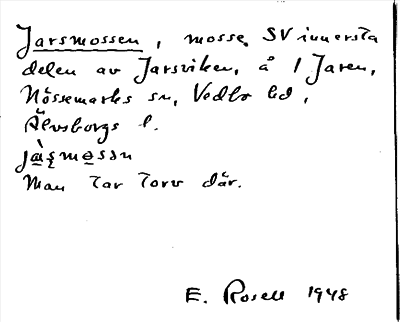 Jarsmossen, mosse SV innersta
delen av Jarsviken, å l Jaren,
Nössemarks sn, Vedbo hd,
Älvsborgs l.
Man tar torv där.
E. Rosell 1948